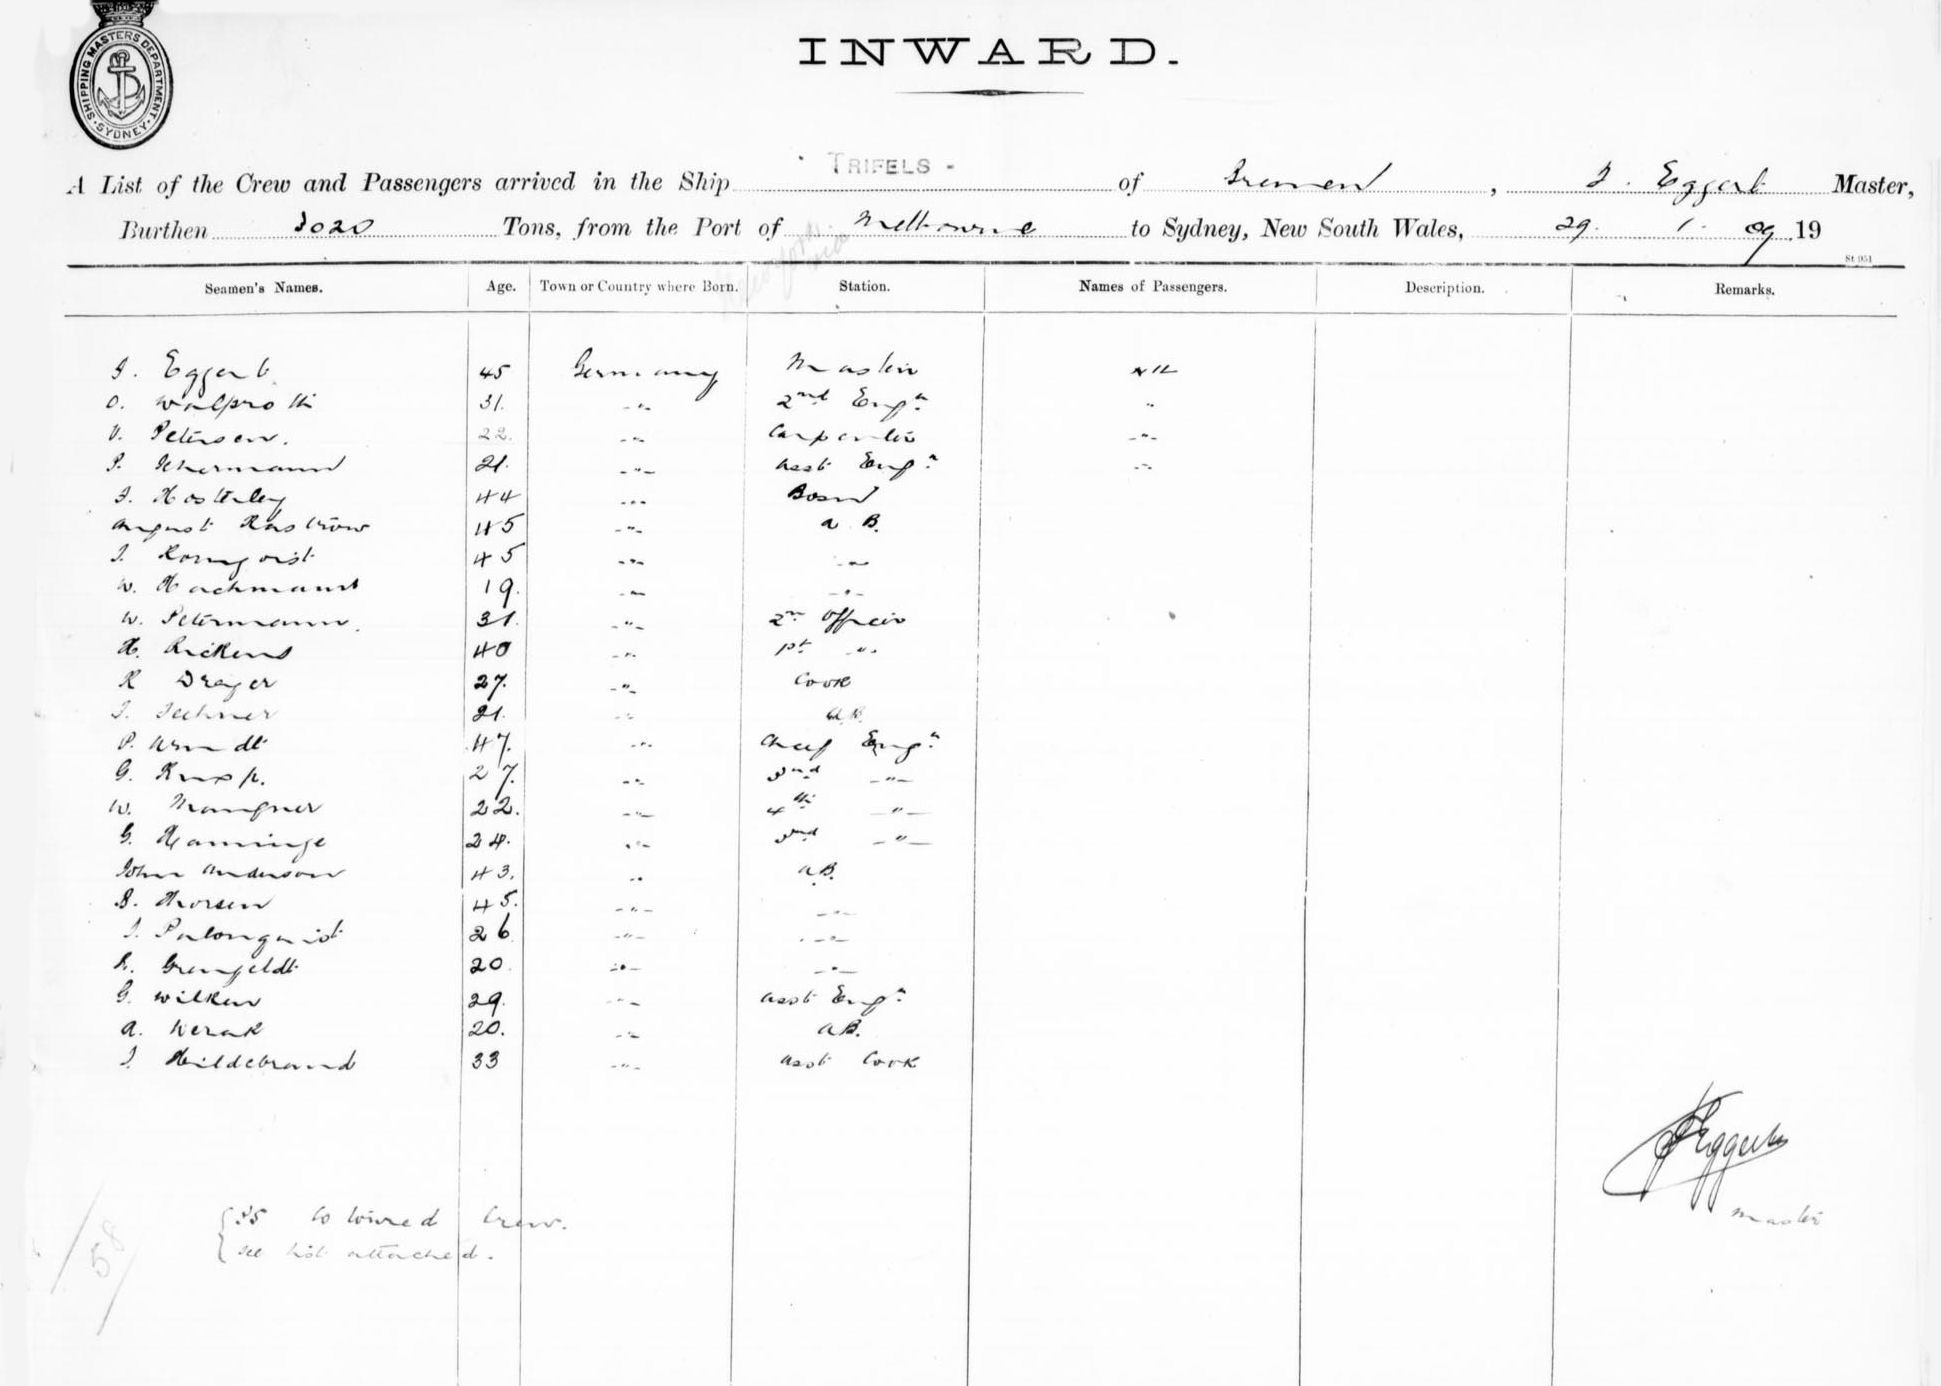 SHIPPING MASTERS DEPARTMENT. SYDNEY
INWARD.
A List of the Crew and Passengers arrived in the Ship TRIFELS - of Bremen, J. Eggert Master,
Burthen 3020 Tons, from the Port of Melbourne to Sydney, New South Wales, 29. 1. 09 19
St 951
Seamen's Names. Age. Town or Country where Born. Station. Names of Passengers. Description. Remarks.
J. Eggert 45 Germany Master Nil
O. 31. -"- 2nd Engr. "
V. Petersen. 22. -"- Carpenter -"-
P. 21. -"- asst Engr. -"-
J. 44 -"- Bosn
August 45 -"- a B.
J. 45 -"- -"-
W. Hachmann 19. -"- -"-
W. Petermann. 31. -"- 2nd Officer
H. Rickens 40 -"- 1st -"-
K Dreyer 27. -"- Cook
J. 21. -"- a.B.
P. Arndt 47. -"- Chief Engr.
G. 27. -"- 3rd -"-
W. 22. -"- 4th -"-
G. 24. -"- 3rd -"-
John Anderson 43. -"- a.B.
45. -"- -"-
J. Palmquist 26 -"- -"-
20. -"- -"-
G. Wilken 29. -"- asst Engr.
A. Werak 20. -"- a.B.
J Hildebrand 33 -"- asst Cook
J Eggert
Master
35 Coloured Crew.
see list attached.
58